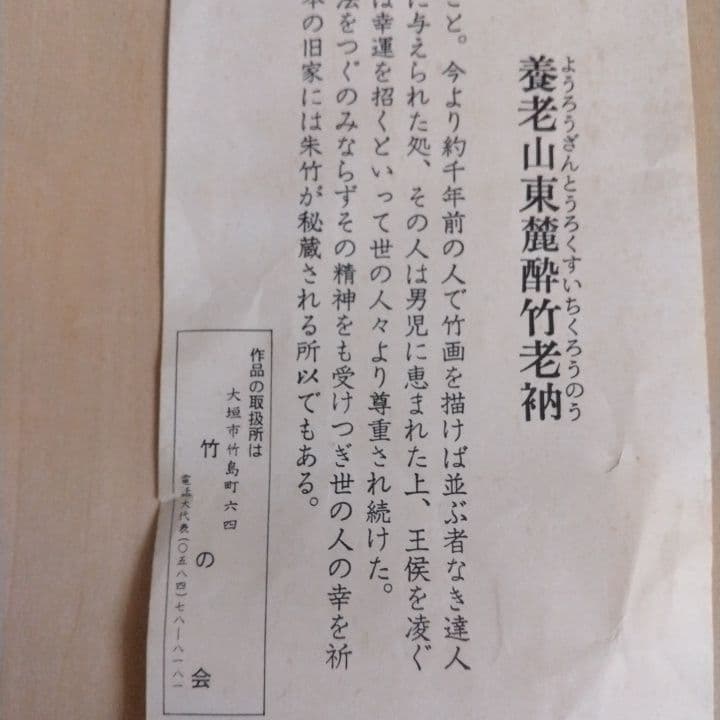 養老山東麓酔竹老衲
ようろうざんとうろくすいちくろうのう
こと。今より約千年前の人で竹画を描けば並ぶ者なき達人
に与えられた処、その人は男児に恵まれた上、王侯を凌ぐ
は幸運を招くといって世の人々より尊重され続けた。
法をつぐのみならずその精神をも受けつぎ世の人の幸を祈
本の旧家には朱竹が秘蔵される所以でもある。
作品の取扱所は
大垣市竹島町六四
竹の会
電話大代表(〇五八四)七八―八一八一